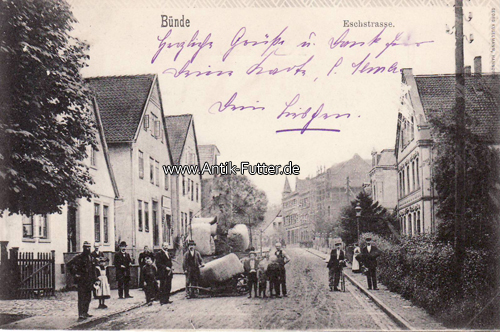 Bünde
Eschstrasse.
Herzliche Grüße u. Dank für
Deine Karte, l. Selma
Dein Lieschen.
www.Antik-Futter.de